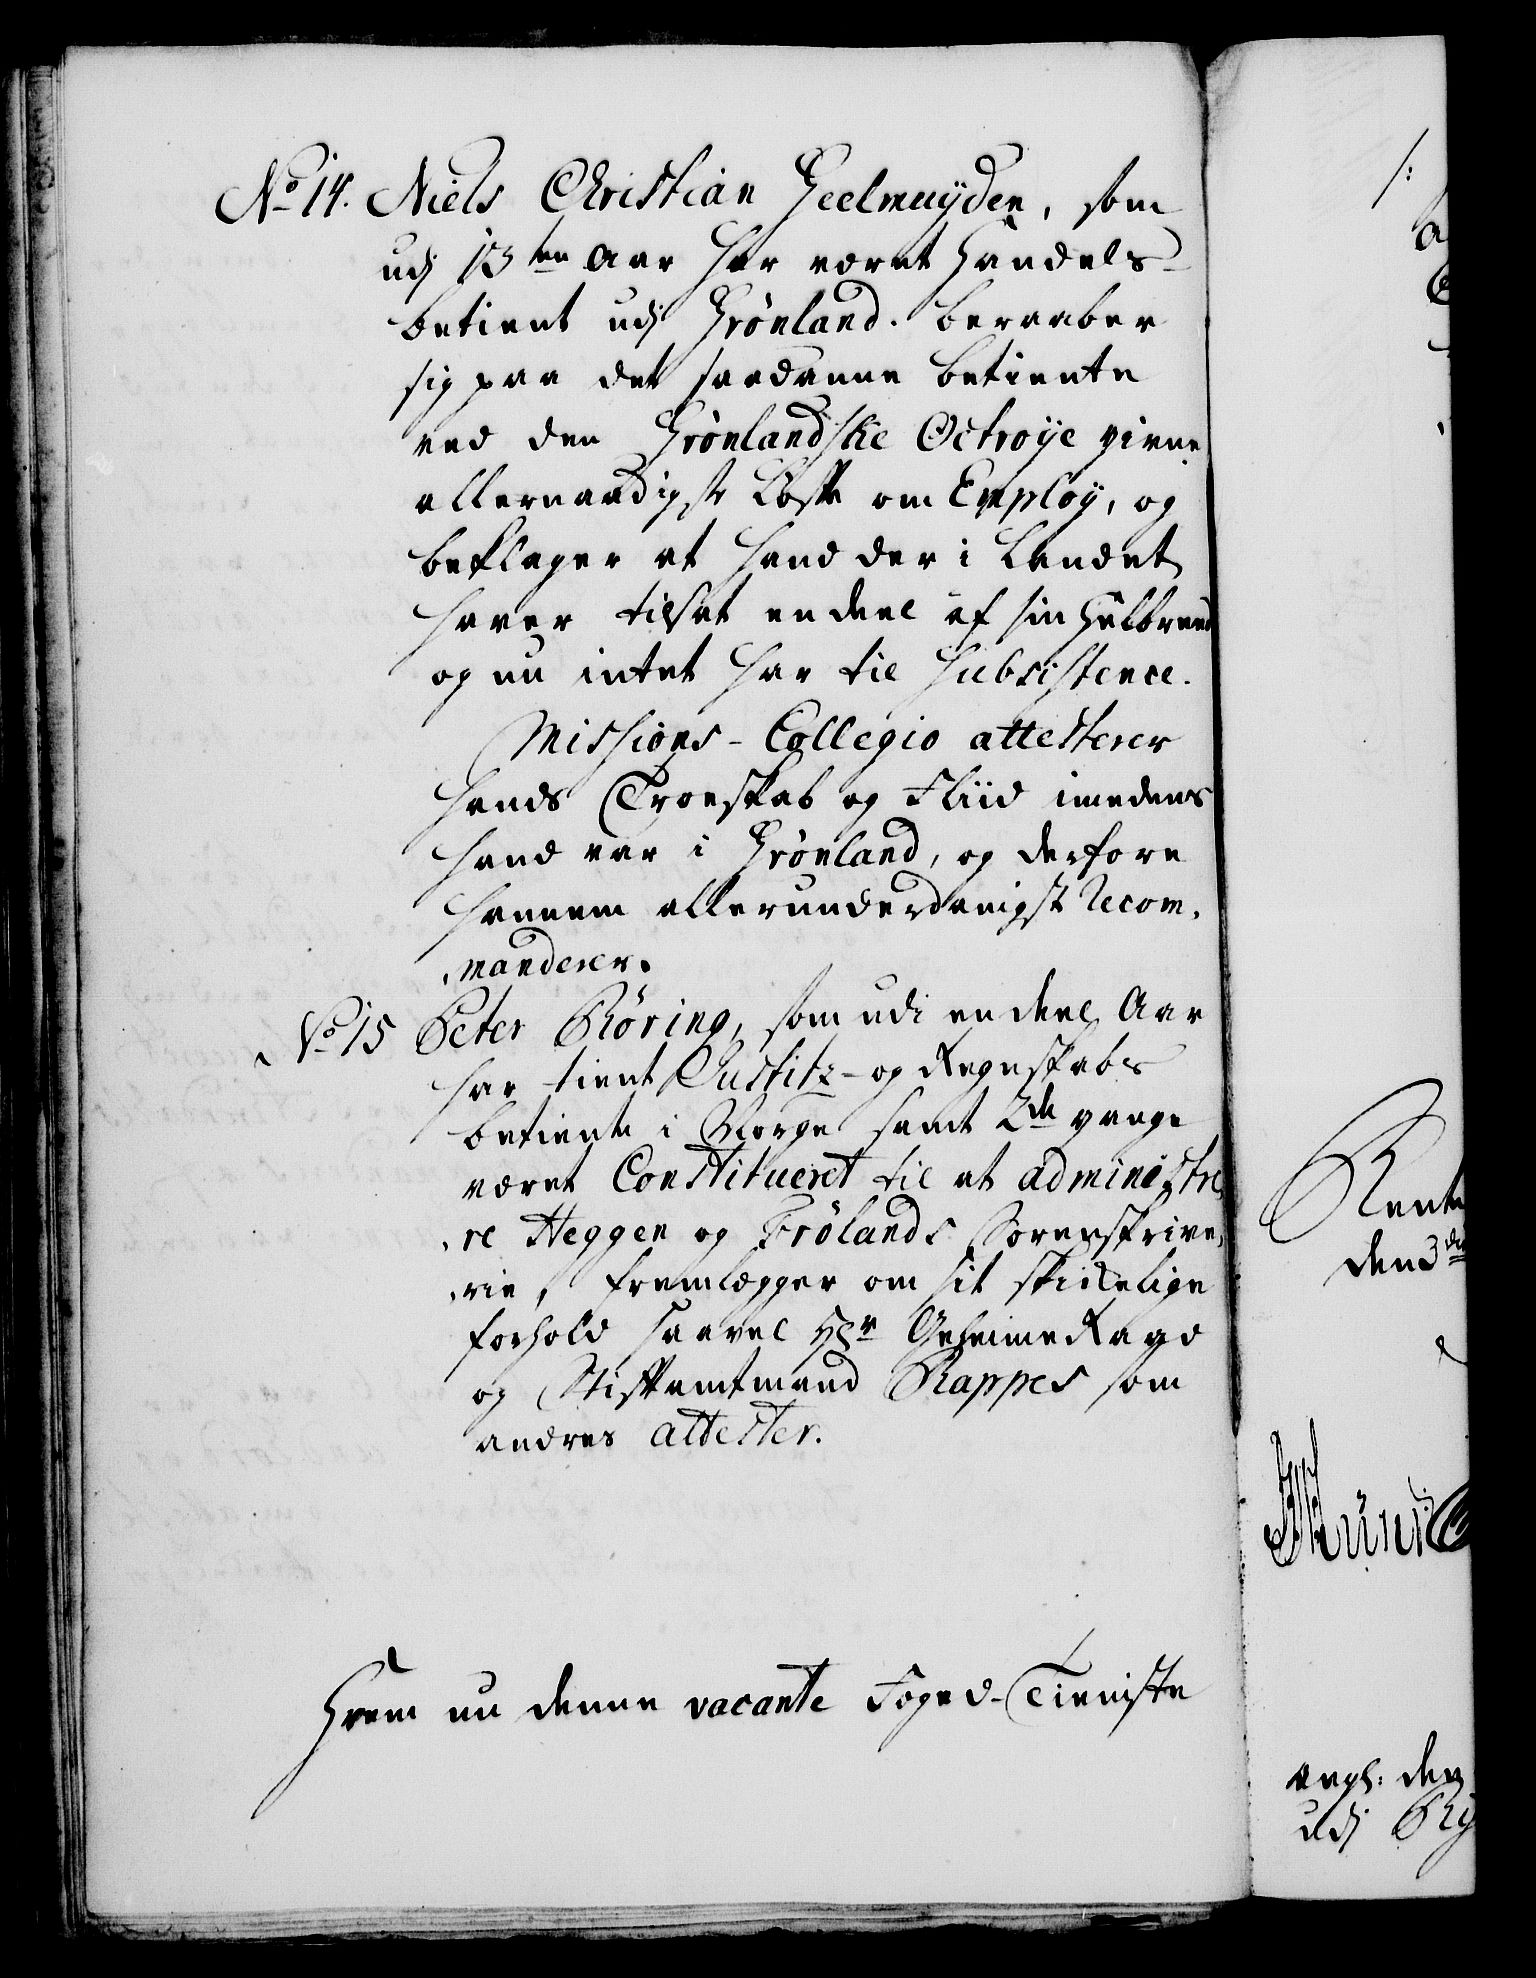 No 14. Niels Christian Geelmuyden, som
udj 13en Aar har været Handels-
betient udj Grønland. beraaber
sig paa det saadanne betiente
ved den Grønlandske Octroye givne
allernaadigste Løfte om Employ, og
beklager at hand der i Landet
haver tilsat en deel af sin Helbreed
og nu intet har til Subsistence.
Missions-Collegio attesterer
hands Troeskab og Fliid imedens
hand var i Grønland, og derfore
hannem allerunderdanigst recom-
manderer.
No 15 Peter Røring, som udi en deel Aar
har tient Justitz- og Regnskabs
betiente i Norge samt 2de gange
været Constitueret til at administre-
re Heggen og Frølands Sorenskrive-
rie, fremlægger om sit skikkelige
forhold saavel Hr Geheime Raad
og Stiftamtmand Rappes som
andres attester.
Hvem nu denne vacante Foged-Tieniste
/:
Rente
den 3die
angl: den
udj Ry